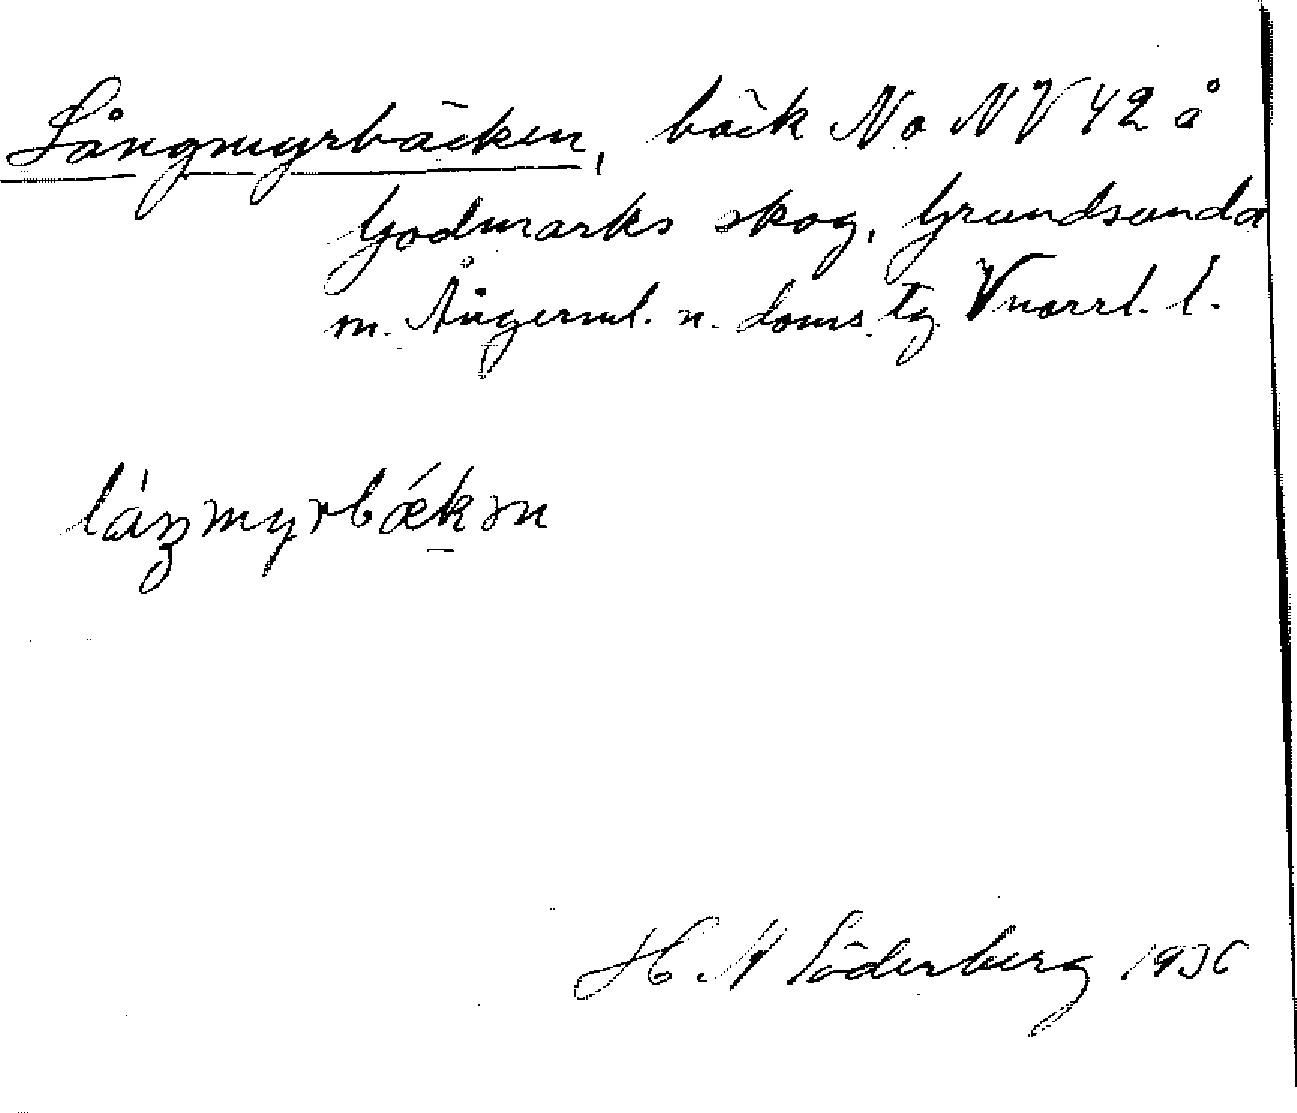 Långmyrbäcken, bäck No NV 42 å
Godmarks skog, Grundsunda
m. Ångerml. n. doms. tg Vnorrl. l.
låŋmyrbækən
H. A Söderberg 1936